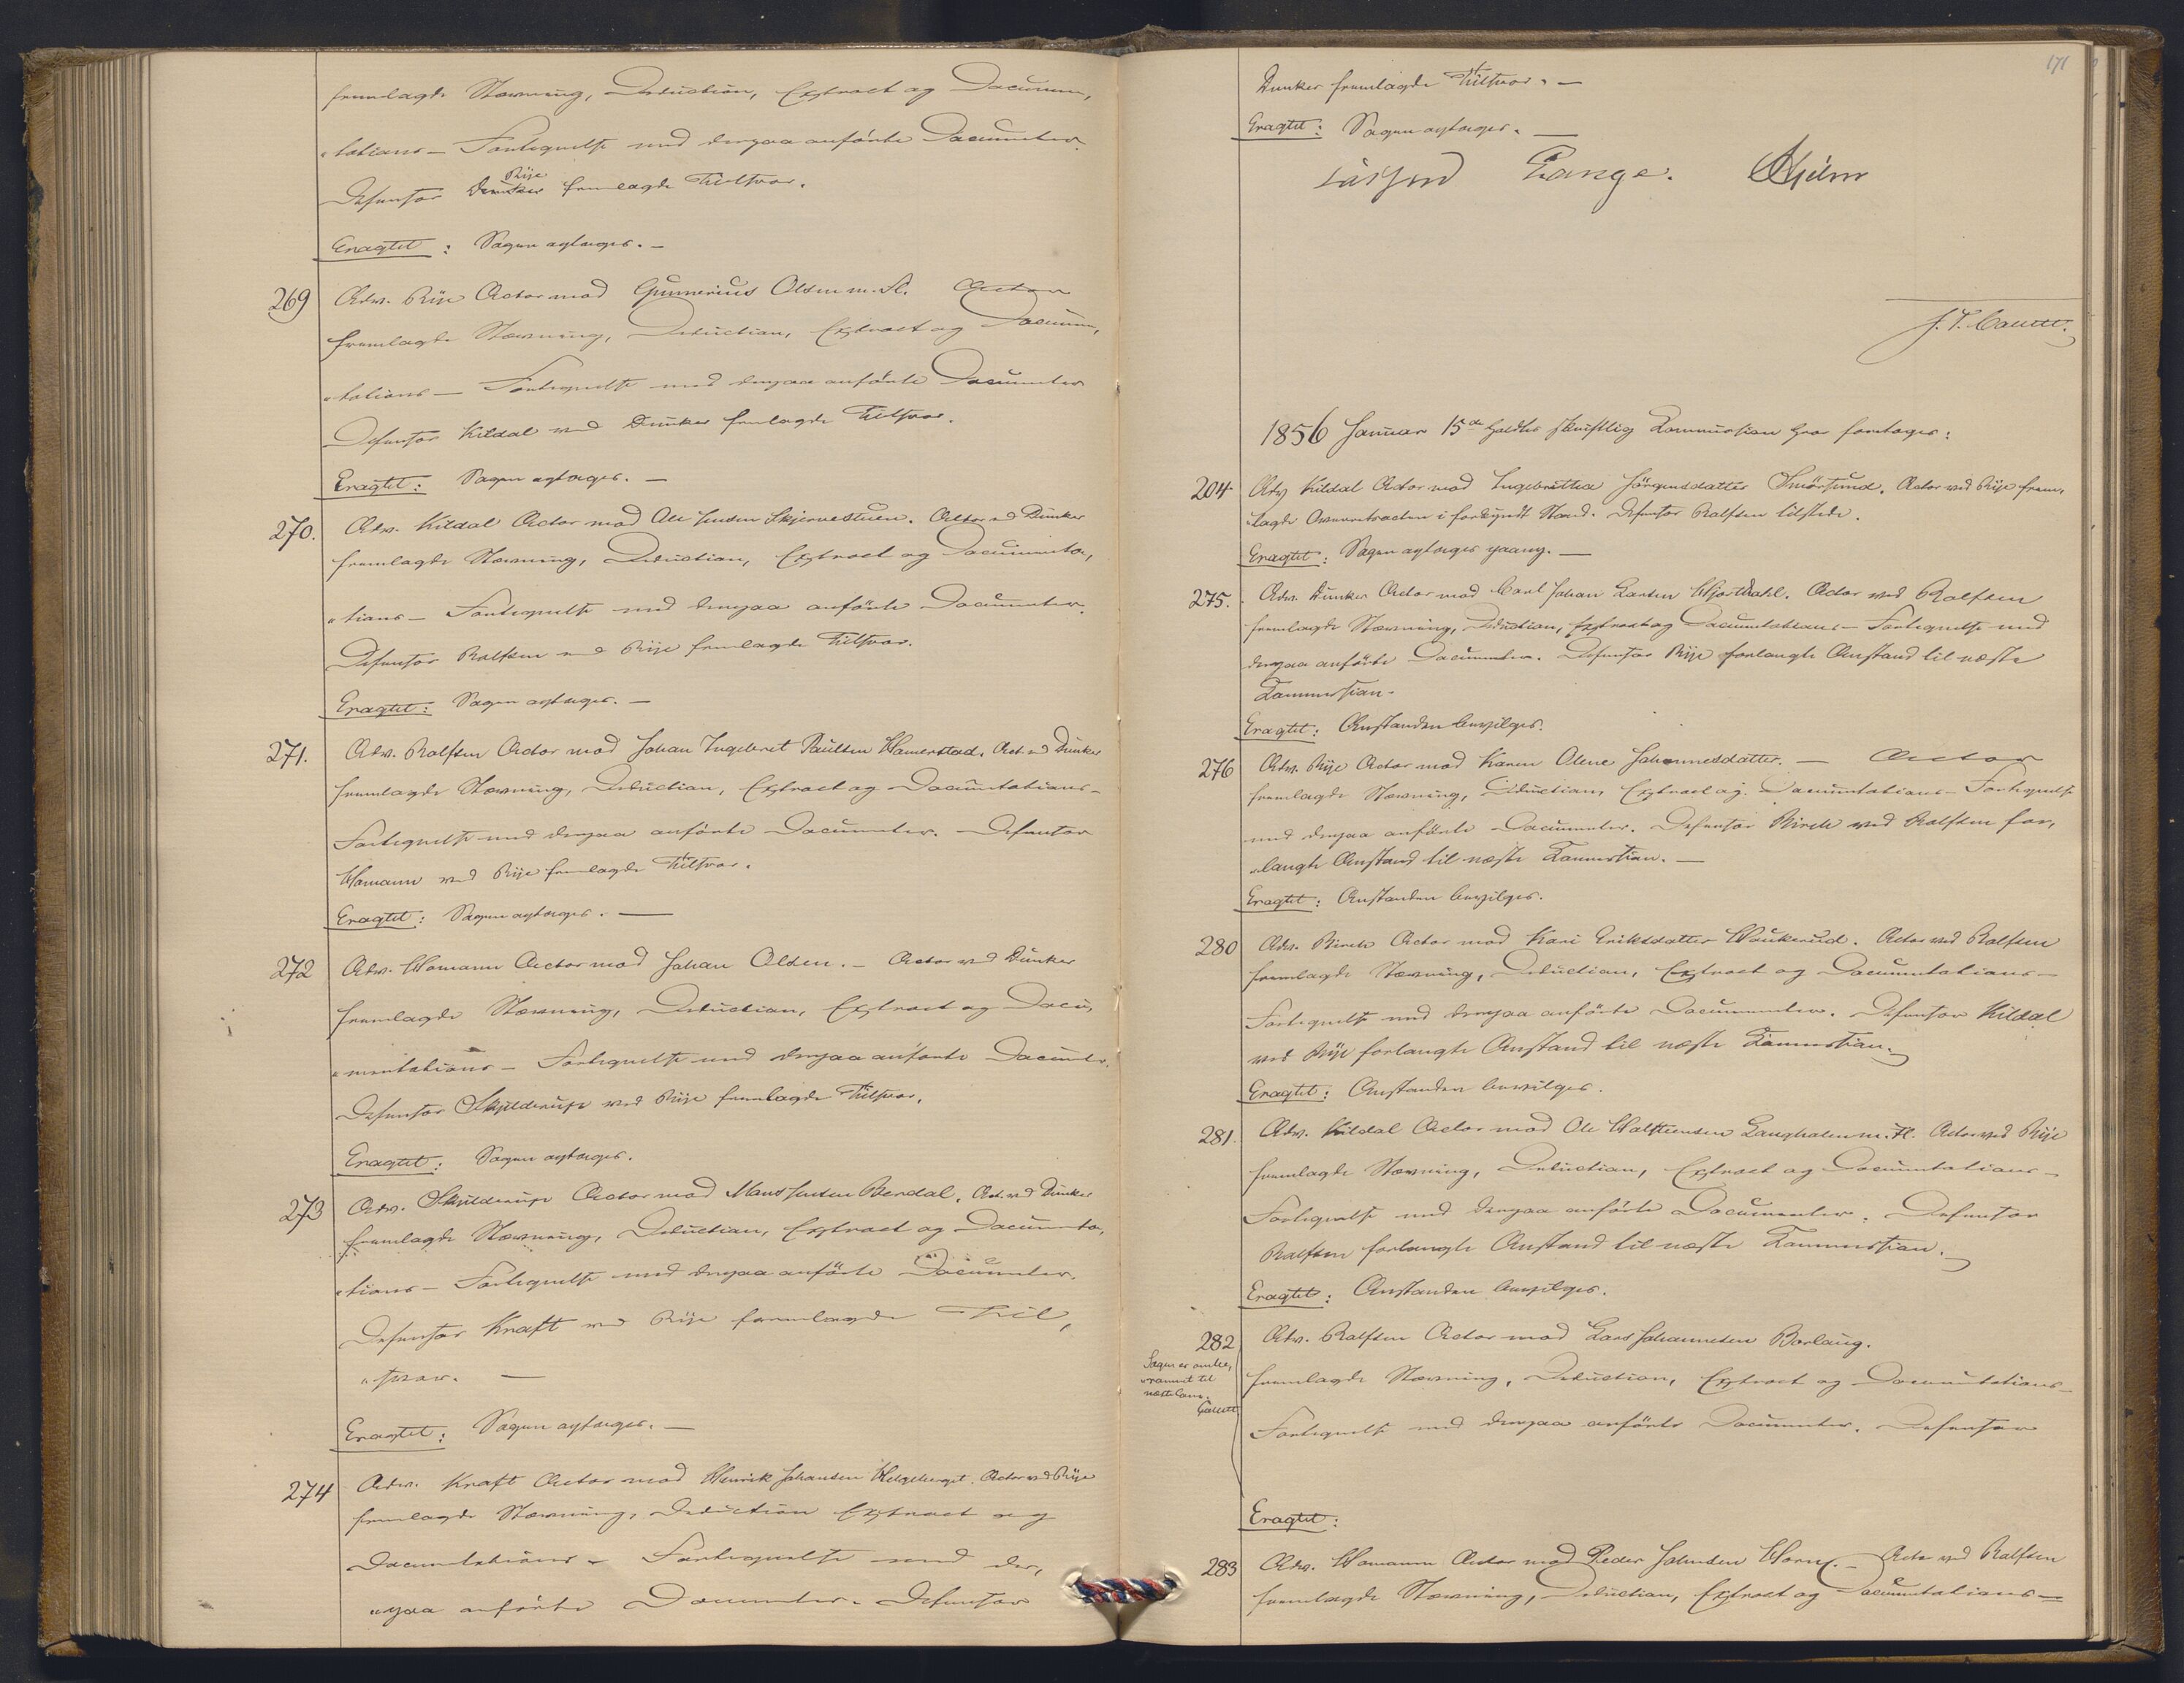 fremlagde Stævning, Deduction, Extract og Documen,
„tations – Fortegnelse med derpaa anførte Documenter.
Rije
Defensor Dunker fremlagde Tilsvar.
Eragtet: Sagen optages. –
269 Adv. Rije Actor mod Gunnerius Olsen m. Fl. Actor
fremlagde Stævning, Deduction, Extract og Docum,
„tations – Fortegnelse med derpaa anførte Documenter
Defensor Kildal ved Dunker fremlagde Tilsvar.
Eragtet: Sagen optages. –
270. Adv. Kildal Actor mod Ole Jensen Skjervestuen. Actor ved Dunker
fremlagde Stævning, Deduction, Extract og Documenta,
„tions – Fortegnelse med derpaa anførte Documenter.
Defensor Rolfsen ved Rije fremlagde Tilsvar.
Eragtet: Sagen optages. –
271. Adv. Rolfsen Actor mod Johan Ingebret Paulsen Hamerstad. Act. ved Dunker
fremlagde Stævning, Deduction, Extract og Documtations –
Fortegnelse med derpaa anførte Documenter. Defensor
Homann ved Rije fremlagde Tilsvar.
Eragtet: Sagen optages. –
272 Adv. Homann Actor mod Johan Olsen. – Actor ved Dunker
fremlagde Stævning, Deduction, Extract og Docu,
„mentations – Fortegnelse med derpaa anførte Documenter.
Defensor Skjelderup ved Rije fremlagde Tilsvar.
Eragtet: Sagen optages.
273 Adv. Skjelderup Actor mod Mons Jensen Berdal. Act. ved Dunker
fremlagde Stævning, Deduction, Extract og Documenta,
„tions – Fortegnelse med derpaa anførte Documenter.
Defensor Kraft ved Rije fremlagde Til,
„svar. –
Eragtet: Sagen optages. –
274 Adv. Kraft Actor mod Henrik Johansen Helgeberget. Actor ved Rije
fremlagde Stævning, Deduction Extract og
Documtations – Fortegnelse med der,
„paa anførte Documenter. Defensor
171
Dunker fremlagde Tilsvar. –
Eragtet: Sagen optages. –
Lasson Lange. Hjelm
J. P. Callett.
1856 Januar 15de holdtes skriftlig Kommission hvor foretoges:
204 Adv Kildal Actor mod Ingebrethea Jörgensdatter Smörsund. Actor ved Rije frem,
„lagde Ovenretsacten i forkyndt Stand. Defensor Rolfsen tilstede.
Eragtet: Sagen optages paany. –
275. Adv. Dunker Actor mod Carl Johan Larsen Hjortdahl. Actor ved Rolfsen
fremlagde Stævning, Deduction, Extract og Documtations – Fortegnelse med
derpaa anførte Documenter. Defensor Rije forlangte Anstand til næste
Kommission.
Eragtet: Anstanden bevilges.
276 Adv. Rije Actor mod Karen Olene Johannesdatter. – Actor
fremlagde Stævning, Deduction, Extract og Documtations – Fortegnelse
med derpaa anførte Documenter. Defensor Birch ved Rolfsen for,
„langte Anstand til næste Kommission. –
Eragtet: Anstanden bevilges.
280 Adv. Birch Actor mod Kari Eriksdatter Haukerud. Actor ved Rolfsen
fremlagde Stævning, Deduction, Extract og Documtations –
Fortegnelse med derpaa anførte Documenter. Defensor Kildal
ved Rije forlangte Anstand til næste Kommission.
Eragtet: Anstanden bevilges.
281. Adv. Kildal Actor mod Ole Halstensen Langhalen m. Fl. Actor ved Rije
fremlagde Stævning, Deduction, Extract og Documtations –
Fortegnelse med derpaa anførte Documenter. Defensor
Rolfsen forlangte Anstand til næste Kommission.
Eragtet: Anstanden bevilges.
282 Adv. Rolfsen Actor mod Lars Johannesen Borlaug.
Sagen er ombe,
„rammet til
næste Com.
Callett
fremlagde Stævning, Deduction, Extract og Documtations –
Fortegnelse med derpaa anførte Documenter. Defensor
Eragtet:
283 Adv. Homann Actor mod Peder Johnsen Horne. – Actor ved Rolfsen
fremlagde Stævning, Deduction, Extract og Documtations –